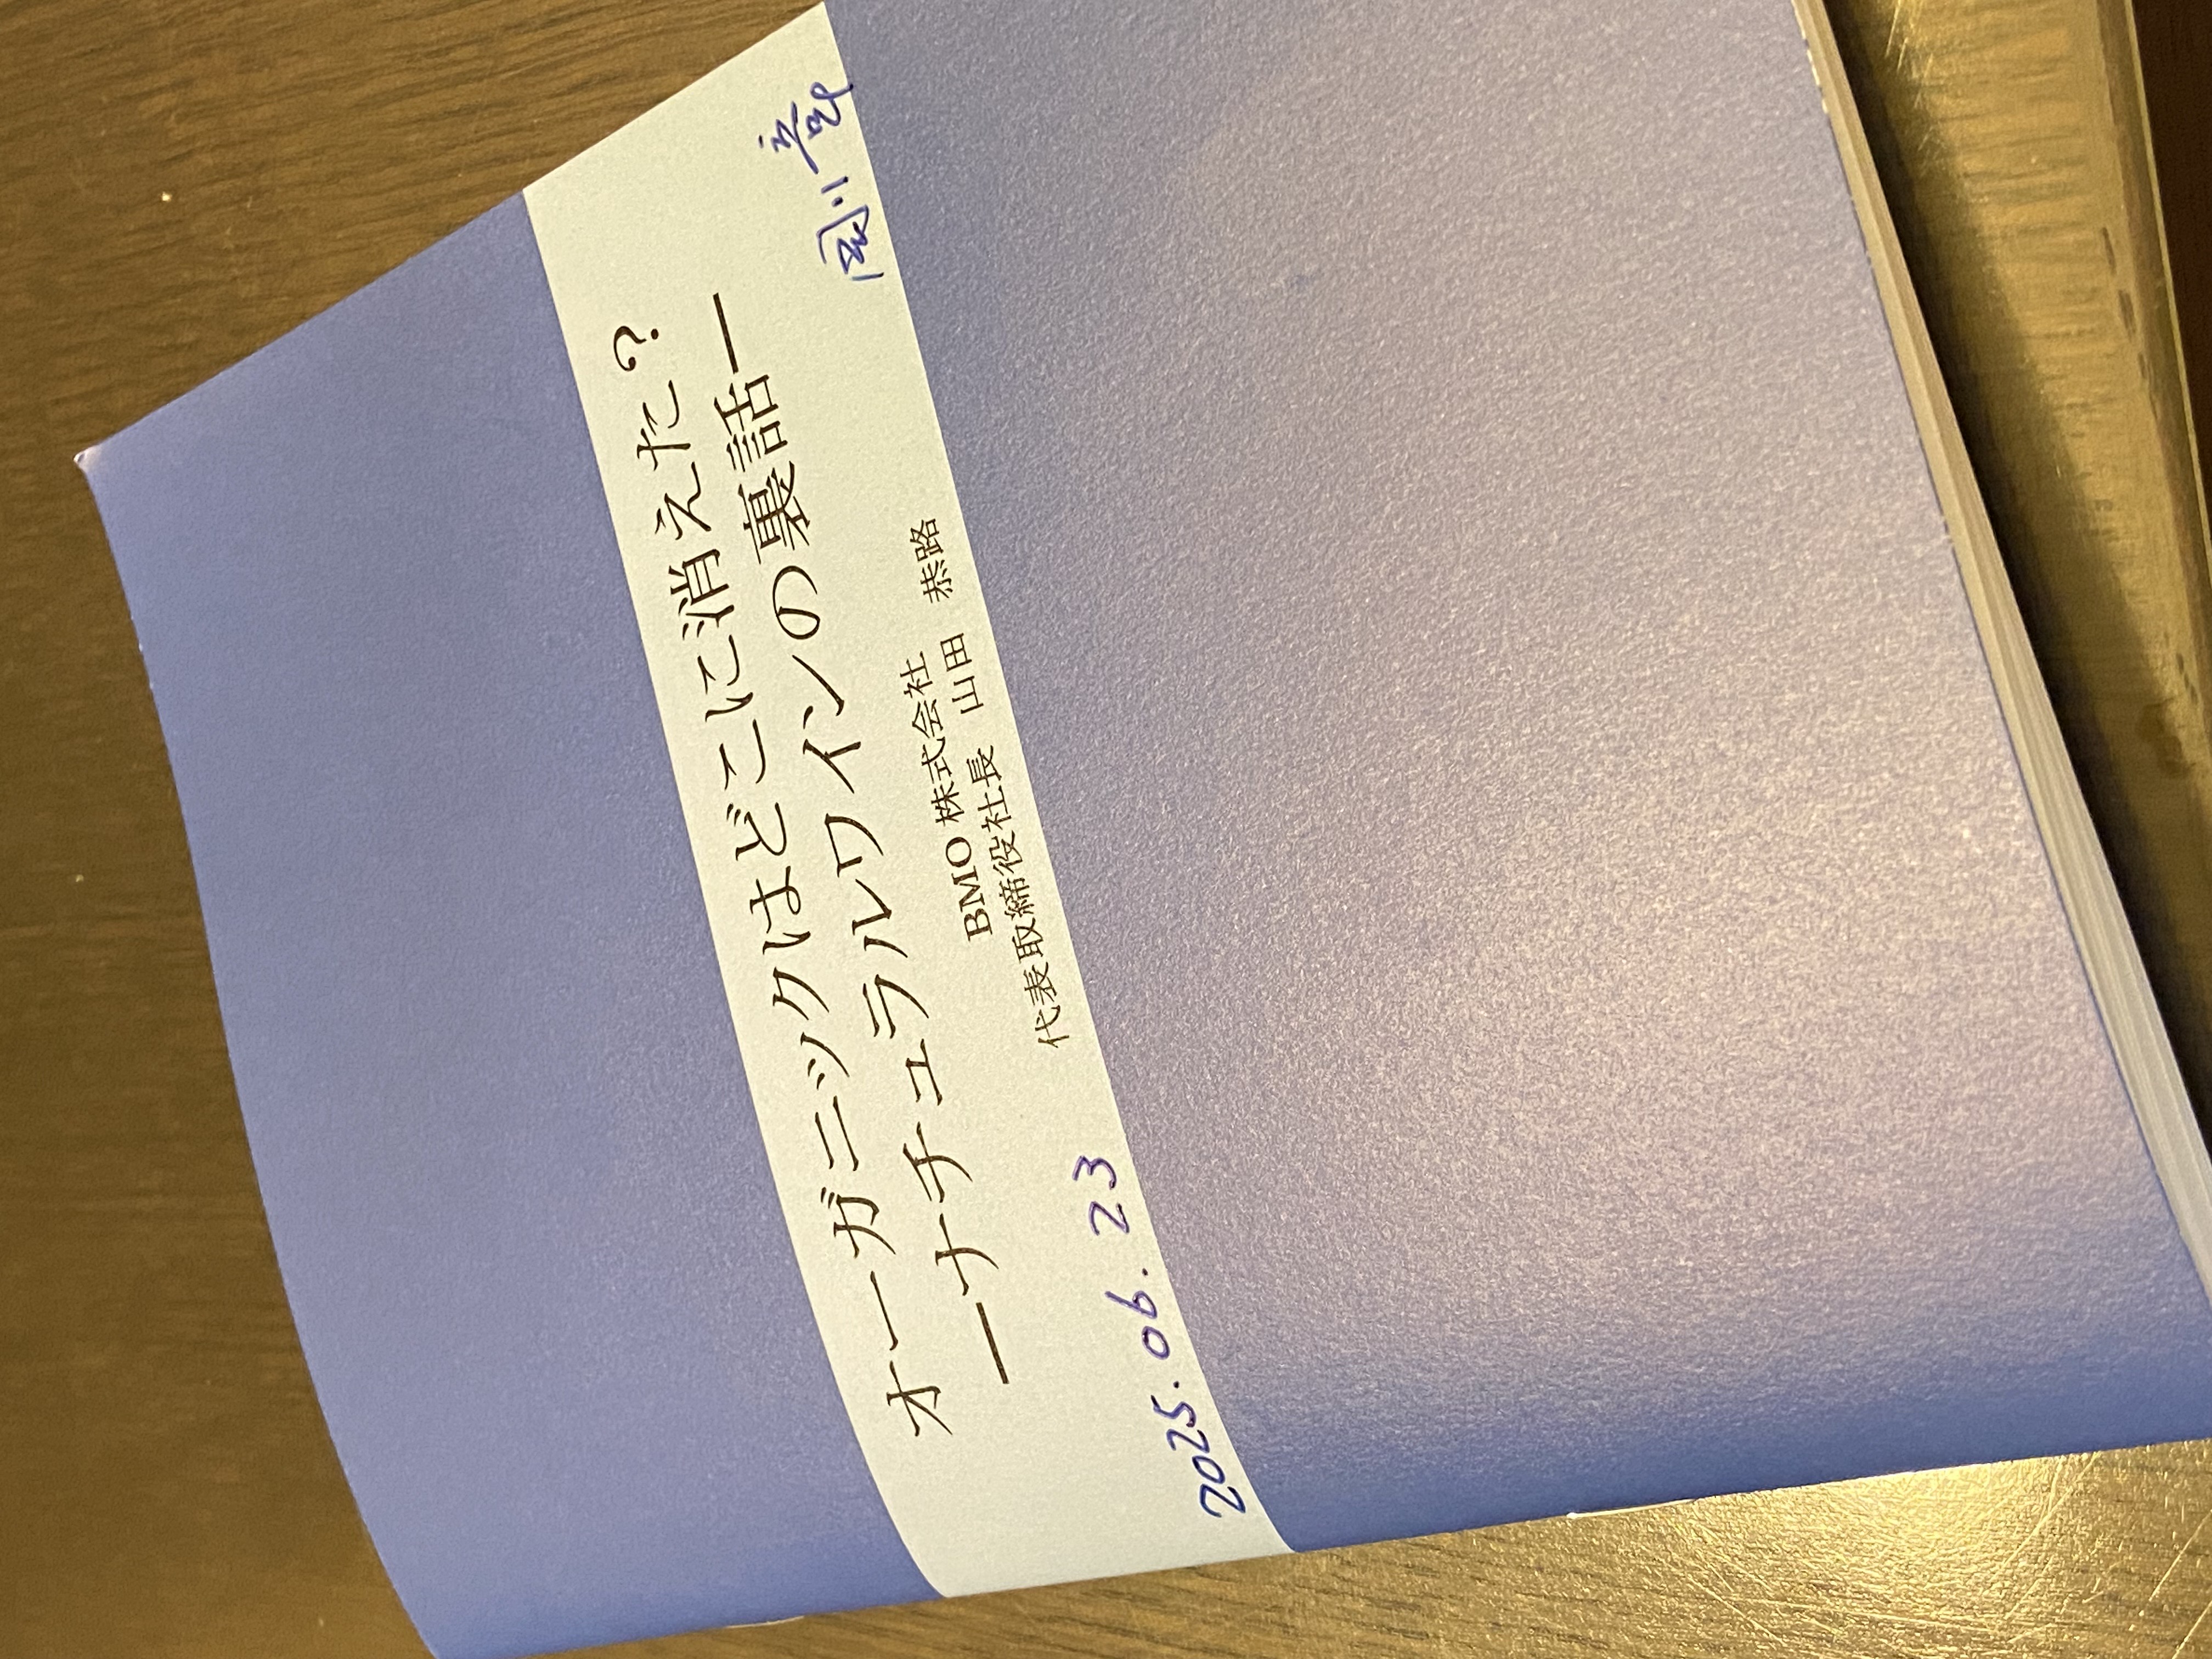 オーガニックはどこに消えた？
―ナチュラルワインの裏話―
BMO 株式会社
代表取締役社長　山田　恭路
2025. 06. 23